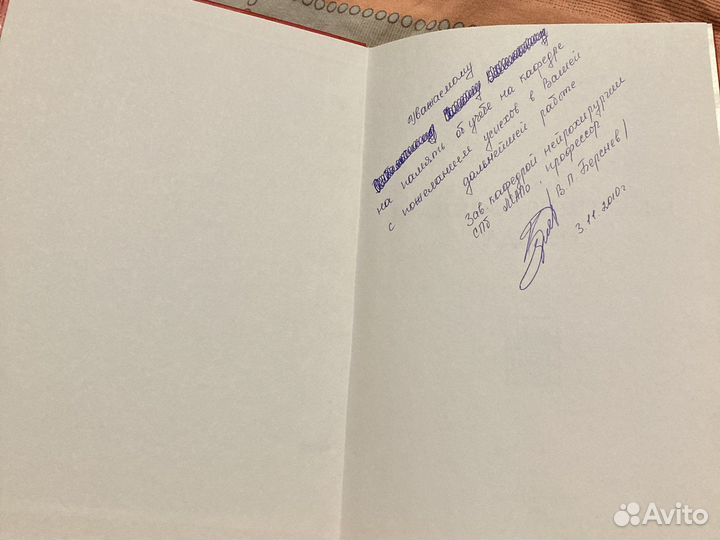 Уважаемому
на память об учебе на кафедре
с пожеланием успехов в Вашей
дальнейшей работе
Зав. кафедрой нейрохирургии
СПб МАПО, профессор
/В.П. Берснев/
3.11.2010г
Avito